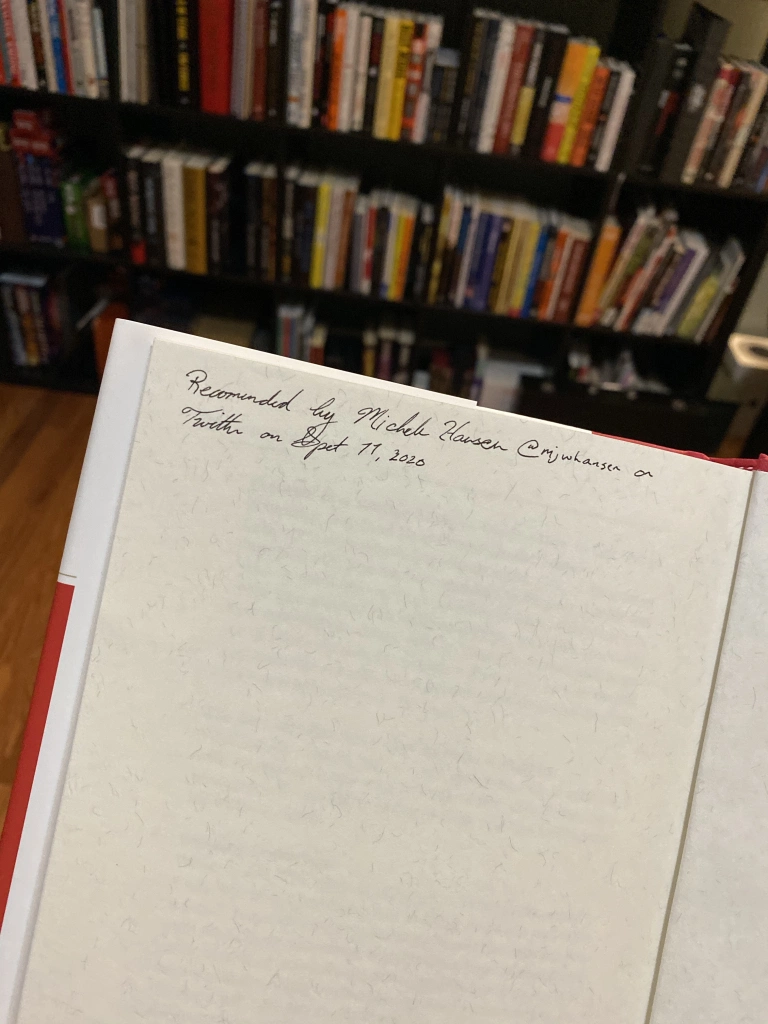 Recominded by Michele Hansen @mjwhansen on
Twitter on Spet 11, 2020